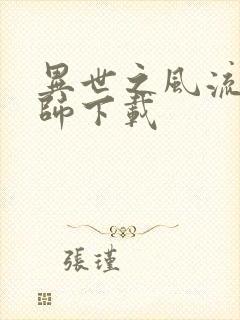 異世之風流
師下載
張瑾